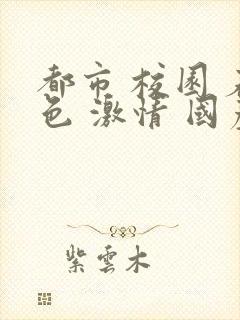 都市 校園
色 激情 國
紫雲木